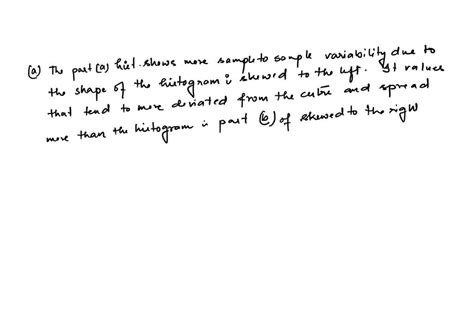 (a) The part (a) hist. shows more sample to sample variability due to
the shape of the histogram is skewed to the left. It values
that tend to more deviated from the centre and spread
more than the histogram in part (b) of skewed to the right